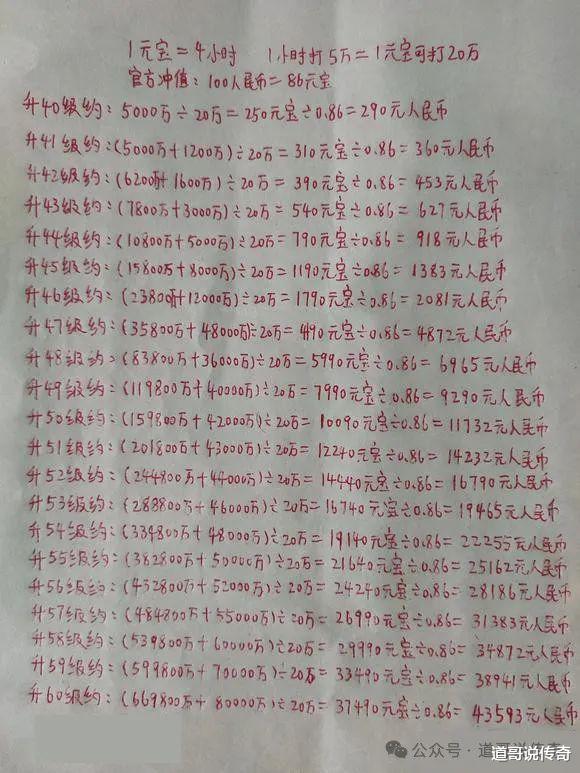 1元宝=4小时 1小时打5万=1元宝可打20万
官方冲值:100人民币=86元宝
升40级约:5000万÷20万=250元宝÷0.86=290元人民币
升41级约:(5000万+1200万)÷20万=310元宝÷0.86=360元人民币
升42级约:(6200万+1600万)÷20万=390元宝÷0.86=453元人民币
升43级约:(7800万+3000万)÷20万=540元宝÷0.86=627元人民币
升44级约:(10800万+5000万)÷20万=790元宝÷0.86=918元人民币
升45级约:(15800万+8000万)÷20万=1190元宝÷0.86=1383元人民币
升46级约:(23800万+12000万)÷20万=1790元宝÷0.86=2081元人民币
升47级约:(35800万+48000万)÷20万=4190元宝÷0.86=4872元人民币
升48级约:(83800万+36000万)÷20万=5990元宝÷0.86=6965元人民币
升49级约:(119800万+40000万)÷20万=7990元宝÷0.86=9290元人民币
升50级约:(159800万+42000万)÷20万=10090元宝÷0.86=11732元人民币
升51级约:(201800万+43000万)÷20万=12240元宝÷0.86=14232元人民币
升52级约:(244800万+44000万)÷20万=14440元宝÷0.86=16790元人民币
升53级约:(288800万+46000万)÷20万=16740元宝÷0.86=19465元人民币
升54级约:(334800万+48000万)÷20万=19140元宝÷0.86=22255元人民币
升55级约:(382800万+50000万)÷20万=21640元宝÷0.86=25162元人民币
升56级约:(432800万+52000万)÷20万=24240元宝÷0.86=28186元人民币
升57级约:(484800万+55000万)÷20万=26990元宝÷0.86=31383元人民币
升58级约:(539800万+60000万)÷20万=29990元宝÷0.86=34872元人民币
升59级约:(599800万+70000万)÷20万=33490元宝÷0.86=38941元人民币
升60级约:(669800万+80000万)÷20万=37490元宝÷0.86=43593元人民币
公众号·道哥说传奇
道哥说传奇